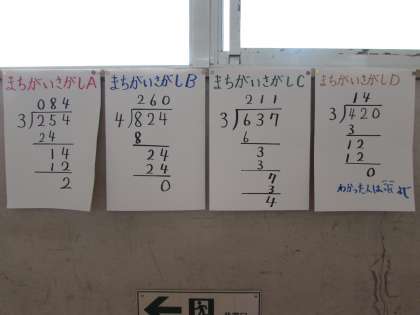 まちがいさがしA
084
3)254
24
14
12
2
まちがいさがしB
260
4)824
8
24
24
0
まちがいさがしC
211
3)637
6
3
3
7
3
4
まちがいさがしD
14
3)420
3
12
12
0
わかった人は
まで